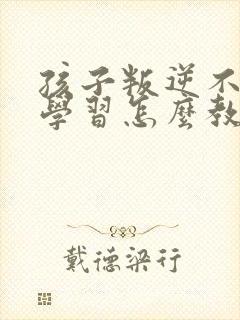 孩子叛逆不
學習怎麼教
戴德梁行